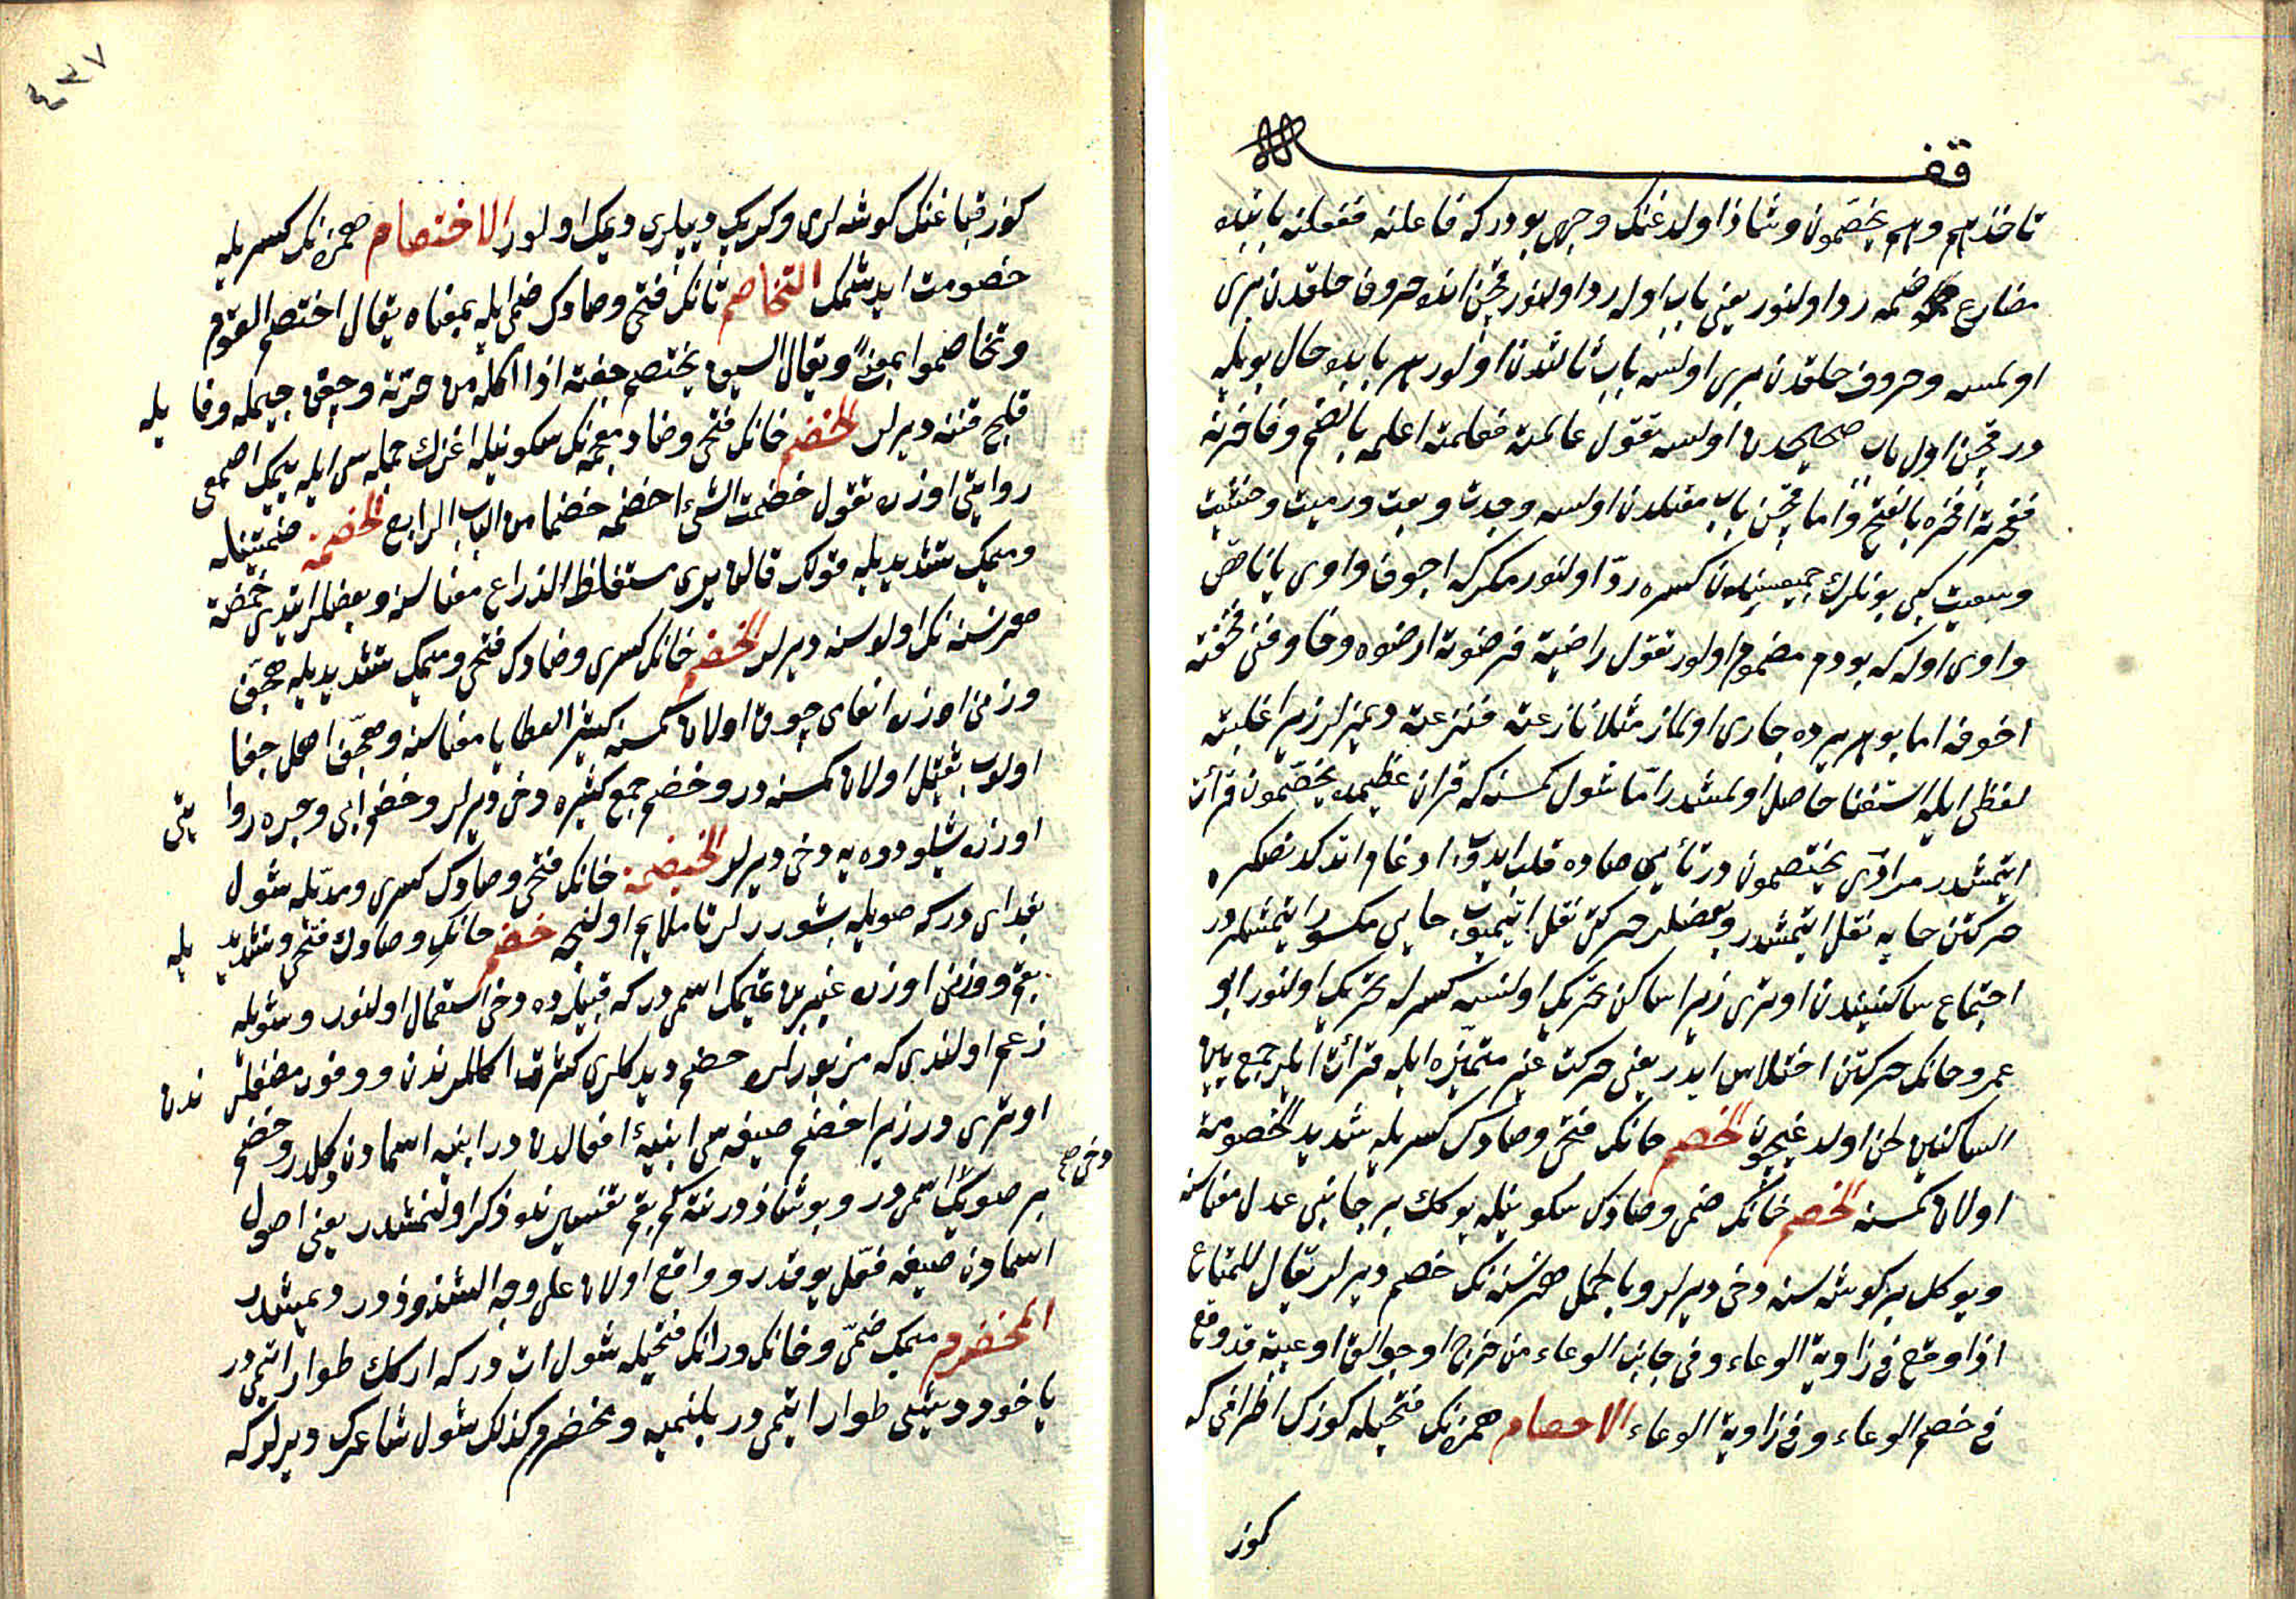 وقف
تأخذهم وهم يخصمون وشاذ اولدغنك وجهى بودركه فاعلته ففعلته بابنده
مضارع ضمه رد اولنور يعنى باب اوله رد اولنور قچن انده حروف حلقدن برى
اولمسه وحروف حلقدن برى اولسه باب ثالثدن اولور هر بابده حال بويله
در قچن اول باب صحيحدن اولسه تقول عالمته فعلمته اعلمه بالضم وفاخرته
ففخرته افخره بالفتح واما قچن باب معتلدن اولسه وجدت وبعت ورميت وخشيت
وسعيت كبى بونلرك جميعسنده كسره رد اولنور مكركه اجوف واوى يا ناقص
واوى اوله كه بودم مضموم اولور تقول راضيته فرضوته ارضوه وخاوفنى فخفته
اخوفه اما بو هر يرده جارى اولماز مثلا نازعته فنزعته ديمزلر زيرا غلبته
لفظى ايله استغنا حاصل اولمشدر اما شول كمسنه كه قران عظيمده يخصمون قرأت
ايتمشدر مرادى يختصمون در تأيى صاده قلب ايدوب ادغام اتدكدنصكره
حركتن خايه نقل ايتمشدر وبعضلر حركتى نقل ايتميوب خايى مكسور ايتمشلردر
اجتماع ساكنيندن اوترى زيرا ساكن تحريك اولنسه كسرله تحريك اولنور ابو
عمرو خانك حركتن اختلاس ايدر يعنى حركت غير متميزه ايله قرأت ايلر جمع بين
الساكنين لحن اولدغيچون الخصم خانك فتحى وصادك كسريله شديد الخصومة
اولان كمسنه الخصم خانك ضمى وصادك سكونيله يوكك بر جانبى عدل معناسنه
ويوكل بر كوشه سنه دخى ديرلر وبالجمله هر نسنه نك خصم ديرلر يقال للمتاع
اذا وقع فى زاوية الوعاء وفى جانب الوعاء من خرج او جوالق او عيبة قد وقع
فى خصم الوعاء وفى زاوية الوعاء الاخصام همزه نك فتحيله كوزك اطرافى كه
كوز
٤٣٧
كوز قپاغنك كوشه لرى وكربك ديپلرى ديمك اولور الاختصام همزه نك كسريله
خصومت ايدشمك التخاصم تانك فتحى وصادك ضمى ايله بمعناه يقال اختصم القوم
وتخاصموا بمعنىً ويقال السيف يختصم جفنه اذا اكله من حدته وجفن جيمله وفا يله
قلج قننه ديرلر الخضم خانك فتحى وضاد معجمه نك سكونيله اغزك جمله سى ايله يمك اصمعى
روايتى اوزره تقول خضمت الشئ اخضمه خضما من الباب الرابع الخضمة ضمتينله
وميمك تشديديله قولك قالن يرى مستغلظ الذراع معناسنه وبعضلر ايتدى خضمة
هر نسنه نك اولوسنه ديرلر الخضم خانك كسرى وضادك فتحى وميمك تشديديله هجف
وزنى اوزره انعامى چوق اولان كمسنه كثير العطايا معناسنه وهجف اهمل جفا
اولوب ثقيل اولان كمسنه در وخضم جمع كثيره دخى ديرلر وخضم ابى وجزه روا يتى
اوزره شيلو دوه يه دخى ديرلر الخضيمة خانك فتحى وضادك كسرى ومديله شول
بغداى دركه صويله بشوررلر تا ملايم اولنجه خضم خانك وضادك فتحى وتشديد يله
بقم وزنى اوزره عنبر بن تميمك اسمى دركه قبيلده دخى استعمال اولنور وشويله
زعم اولندى كه مزبورلره خضم ديدكلرى كثرت اكللرندن ووفور مضغلر ندن
اوترى در زيرا خضم صيغه سى ابنية افعالدن در ابنيه اسمادن دكلدر وخضم دخى صح
بر صويك اسمى در وبو شاذ در نته كم بقم تفسيرنده ذكر اولنمشدر يعنى اصول
اسمادن صيغه فعل يوقدر وواقع اولان على وجه الشذوذ در ديمشلر
المخضرم ميمك ضمى وخانك ورانك فتحيله شول ات دركه اركك طوار اتمى در
ياخود ديشى طوار اتمى در بلنميه ومخضرم كذلك شول شاعرك ديرلر كه